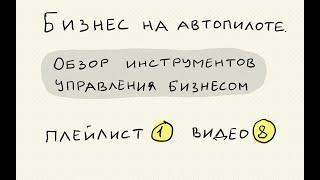 БИЗНЕС НА АВТОПИЛОТЕ.
ОБЗОР ИНСТРУМЕНТОВ
УПРАВЛЕНИЯ БИЗНЕСОМ
ПЛЕЙЛИСТ 1 ВИДЕО 8